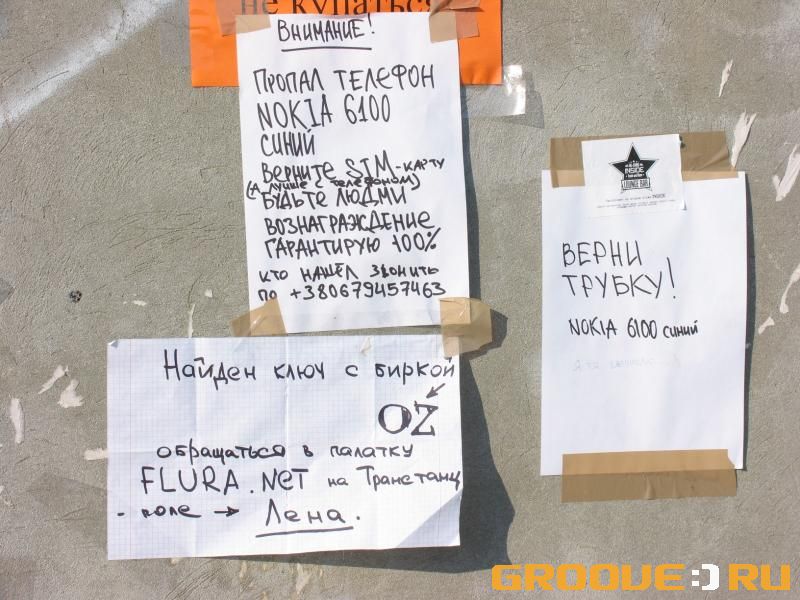 не купаться
ВНИМАНИЕ!
ПРОПАЛ ТЕЛЕФОН
NOKIA 6100
СИНИЙ
ВЕРНИТЕ SIM-КАРТУ
(А ЛУЧШЕ С ТЕЛЕФОНОМ)
БУДЬТЕ ЛЮДМИ
ВОЗНАГРАЖДЕНИЕ
ГАРАНТИРУЮ 100%
КТО НАШЁЛ ЗВОНИТЬ
ПО +380679457463
INSIDE
LOUNGE BAR
ВЕРНИ
ТРУБКУ!
NOKIA 6100 СИНИЙ
Найден ключ с биркой
OZ
обращаться в палатку
FLURA.NET на Транстанц
- поле → Лена.
GROOVE:)RU